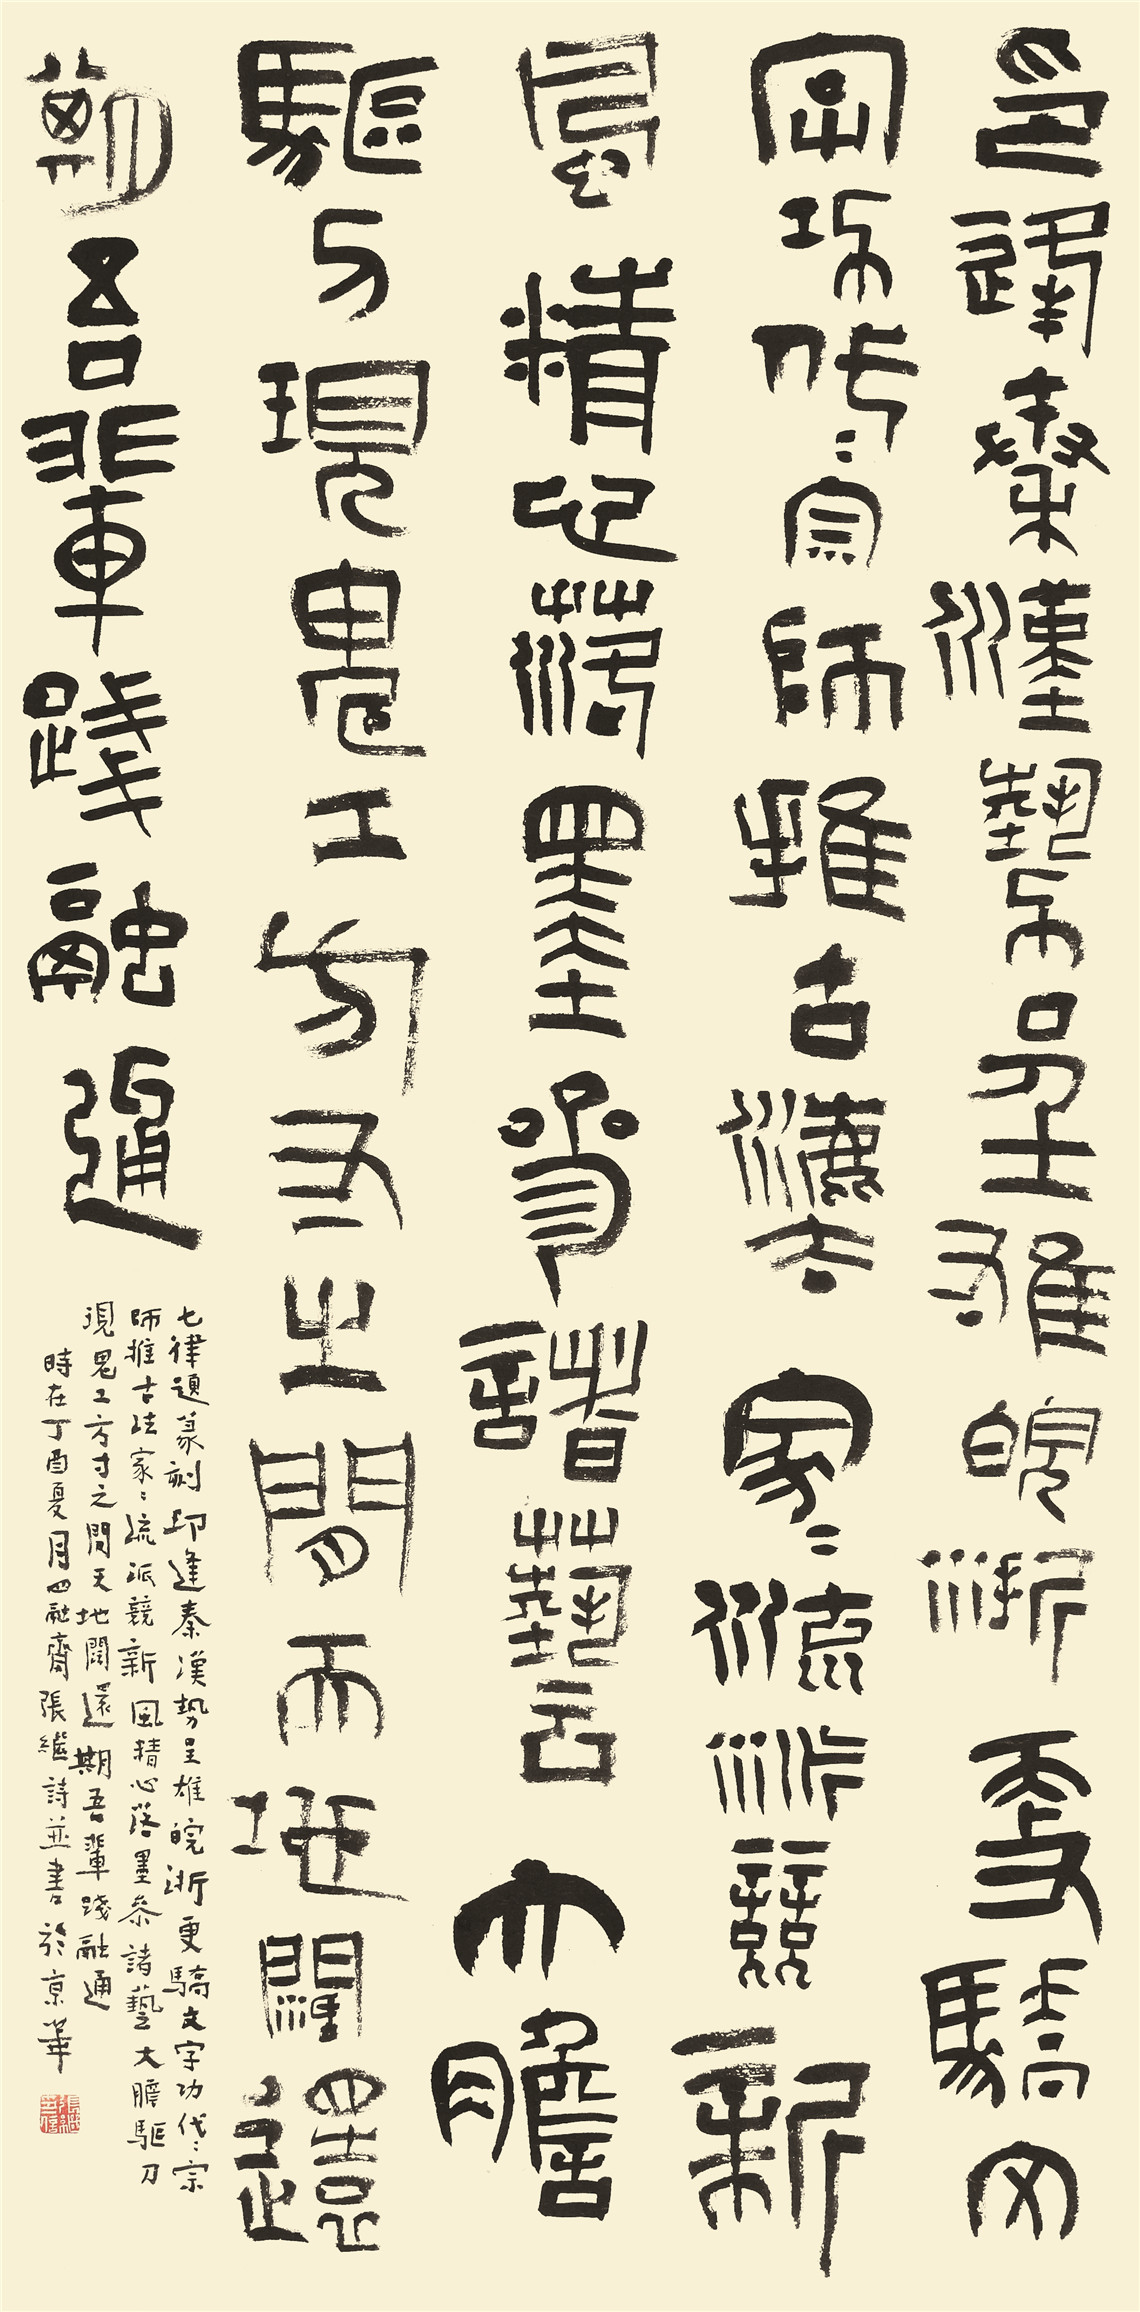 印逢秦漢勢呈雄皖浙更驕文
字功代〻宗師推古灋家〻流派競新
風精心落墨參諸藝大膽
驅刀現鬼工方寸之間天地闊還
期吾輩踐融通
七律題篆刻印逢秦漢勢呈雄皖浙更驕文字功代〻宗
師推古法家〻流派競新風精心落墨參諸藝大膽驅刀
現鬼工方寸之間天地闊還期吾輩踐融通
時在丁酉夏月四融齋張繼詩並書於京華